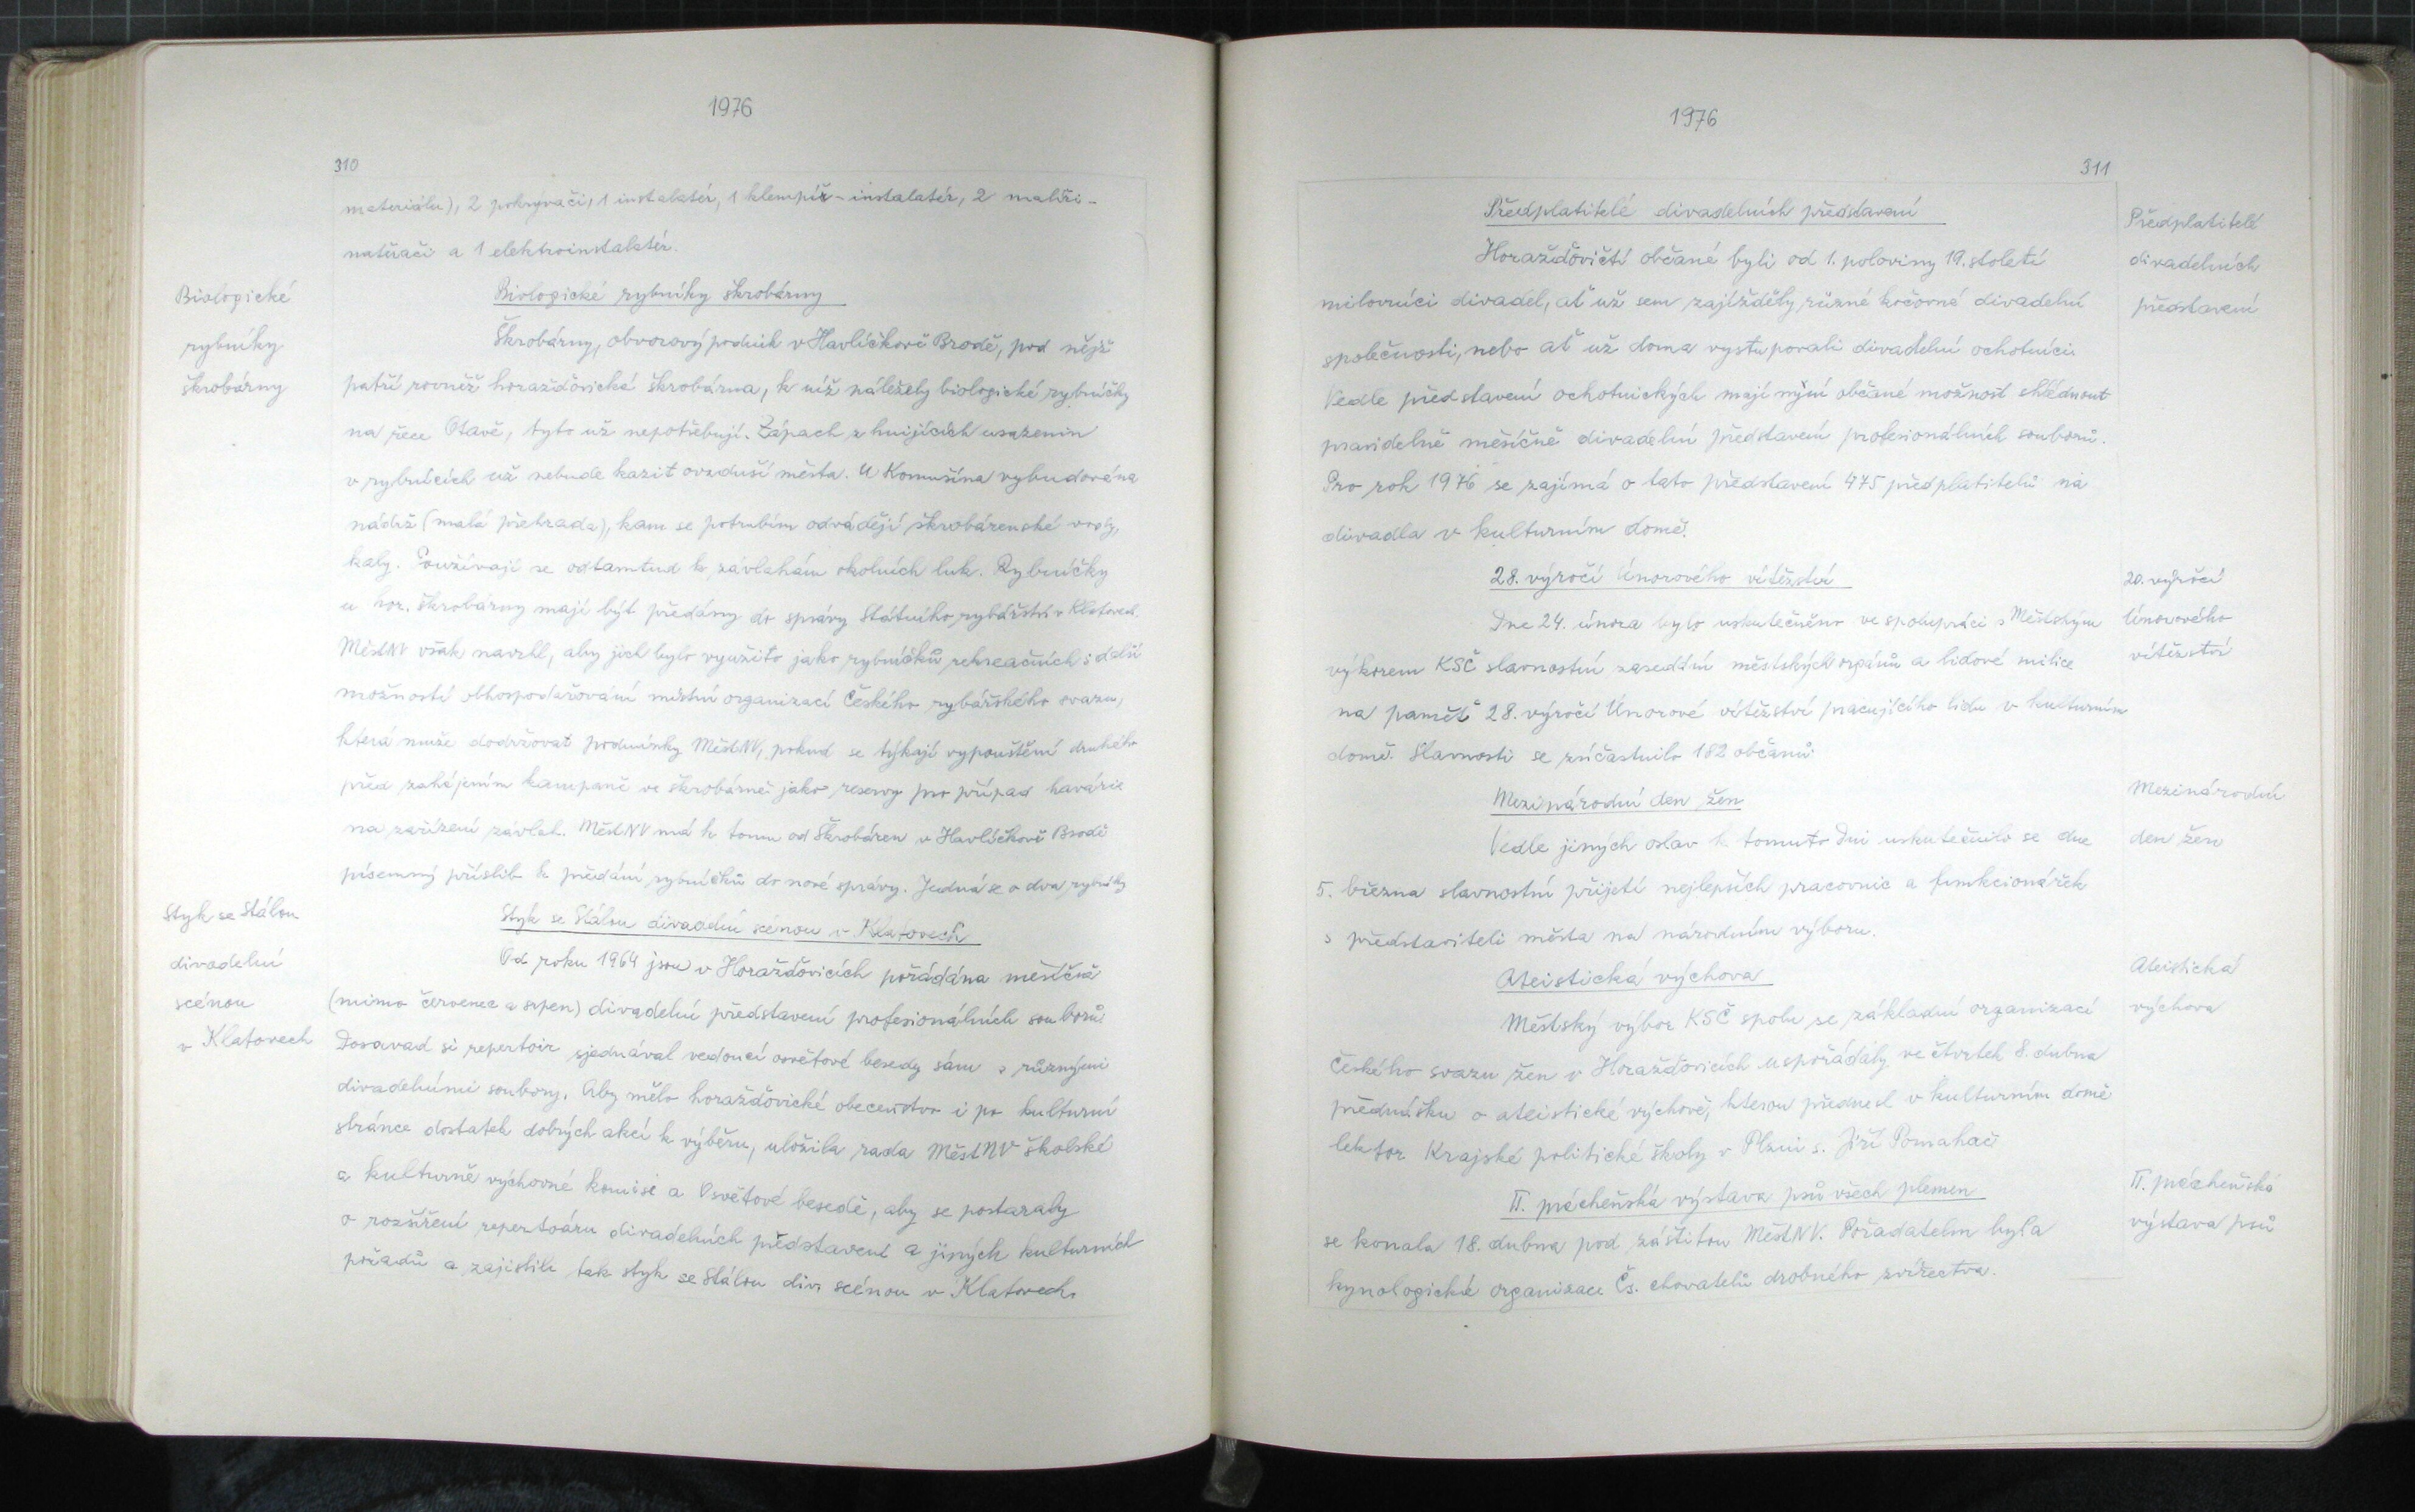 1976
310
materiálu), 2 pokrývači, 1 instalatér, 1 klempíř-instalatér, 2 malíři-
natěrači a 1 elektroinstalatér.
Biologické
rybníky
škrobárny
Biologické rybníky škrobárny
Škrobárny, oborový podnik v Havlíčkově Brodě, pod nějž
patří rovněž horažďovická škrobárna, k níž náležely biologické rybníčky
na řece Otavě, tyto už nepotřebují. Zápach z hnijících usazenin
v rybnících už nebude kazit ovzduší města. U Komušína vybudována
nádrž (malá přehrada), kam se potrubím odvádějí škrobárenské vody,
kaly. Používají se odtamtud k závlahám okolních luk. Rybníčky
u hor. škrobárny mají být předány do správy Státního rybářství v Klatovech.
MěstNV však navrhl, aby jich bylo využito jako rybníčků rekreačních s další
možností obhospodařování místní organizací Českého rybářského svazu,
která může dodržovat podmínky MěstNV, pokud se týkají vypouštění druhého
před zahájením kampaně ve škrobárně jako reservy pro případ havárie
na zařízení závlah. MěstNV má k tomu od Škrobáren v Havlíčkově Brodě
písemný příslib k předání rybníčků do nové správy. Jedná se o dva rybníky
Styk se Stálou
divadelní
scénou
v Klatovech
Styk se Stálou divadelní scénou v Klatovech
Od roku 1964 jsou v Horažďovicích pořádána měsíčně
(mimo červenec a srpen) divadelní představení profesionálních souborů.
Dosavad si repertoir sjednával vedoucí osvětové besedy sám s různými
divadelními soubory. Aby mělo horažďovické obecenstvo i po kulturní
stránce dostatek dobrých akcí k výběru, uložila rada MěstNV školské
a kulturně výchovné komisi a Osvětové besedě, aby se postaraly
o rozšíření repertoáru divadelních představení a jiných kulturních
pořadů a zajistili tak styk se Stálou div. scénou v Klatovech.
1976
311
Předplatitelé divadelních představení
Předplatitelé
divadelních
představení
Horažďovičtí občané byli od 1. poloviny 19. století
milovníci divadel, ať už sem zajížděly různé kočovné divadelní
společnosti, nebo ať už doma vystupovali divadelní ochotníci.
Vedle představení ochotnických mají nyní občané možnost shlédnout
pravidelně měsíčně divadelní představení profesionálních souborů.
Pro rok 1976 se zajímá o tato představení 475 předplatitelů na
divadla v kulturním domě.
28. výročí Únorového vítězství
20. výročí
Únorového
vítězství
Dne 24. února bylo uskutečněno ve spolupráci s Městským
výborem KSČ slavnostní zasedání městských orgánů a lidové milice
na paměť 28. výročí Únorové vítězství pracujícího lidu v kulturním
domě. Slavnosti se zúčastnilo 182 občanů.
Mezinárodní den žen
Mezinárodní
den žen
Vedle jiných oslav k tomuto Dni uskutečnilo se dne
5. března slavnostní přijetí nejlepších pracovnic a funkcionářek
s představiteli města na národním výboru.
Ateistická výchova
Ateistická
výchova
Městský výbor KSČ spolu se základní organizací
Českého svazu žen v Horažďovicích uspořádaly ve čtvrtek 8. dubna
přednášku o ateistické výchově, kterou přednesl v kulturním domě
lektor Krajské politické školy v Plzni s. Jiří Pomahač
II. prácheňská výstava psů všech plemen
II. prácheňská
výstava psů
se konala 18. dubna pod záštitou MěstNV. Pořadatelem byla
kynologická organizace Čs. chovatelů drobného zvířectva.